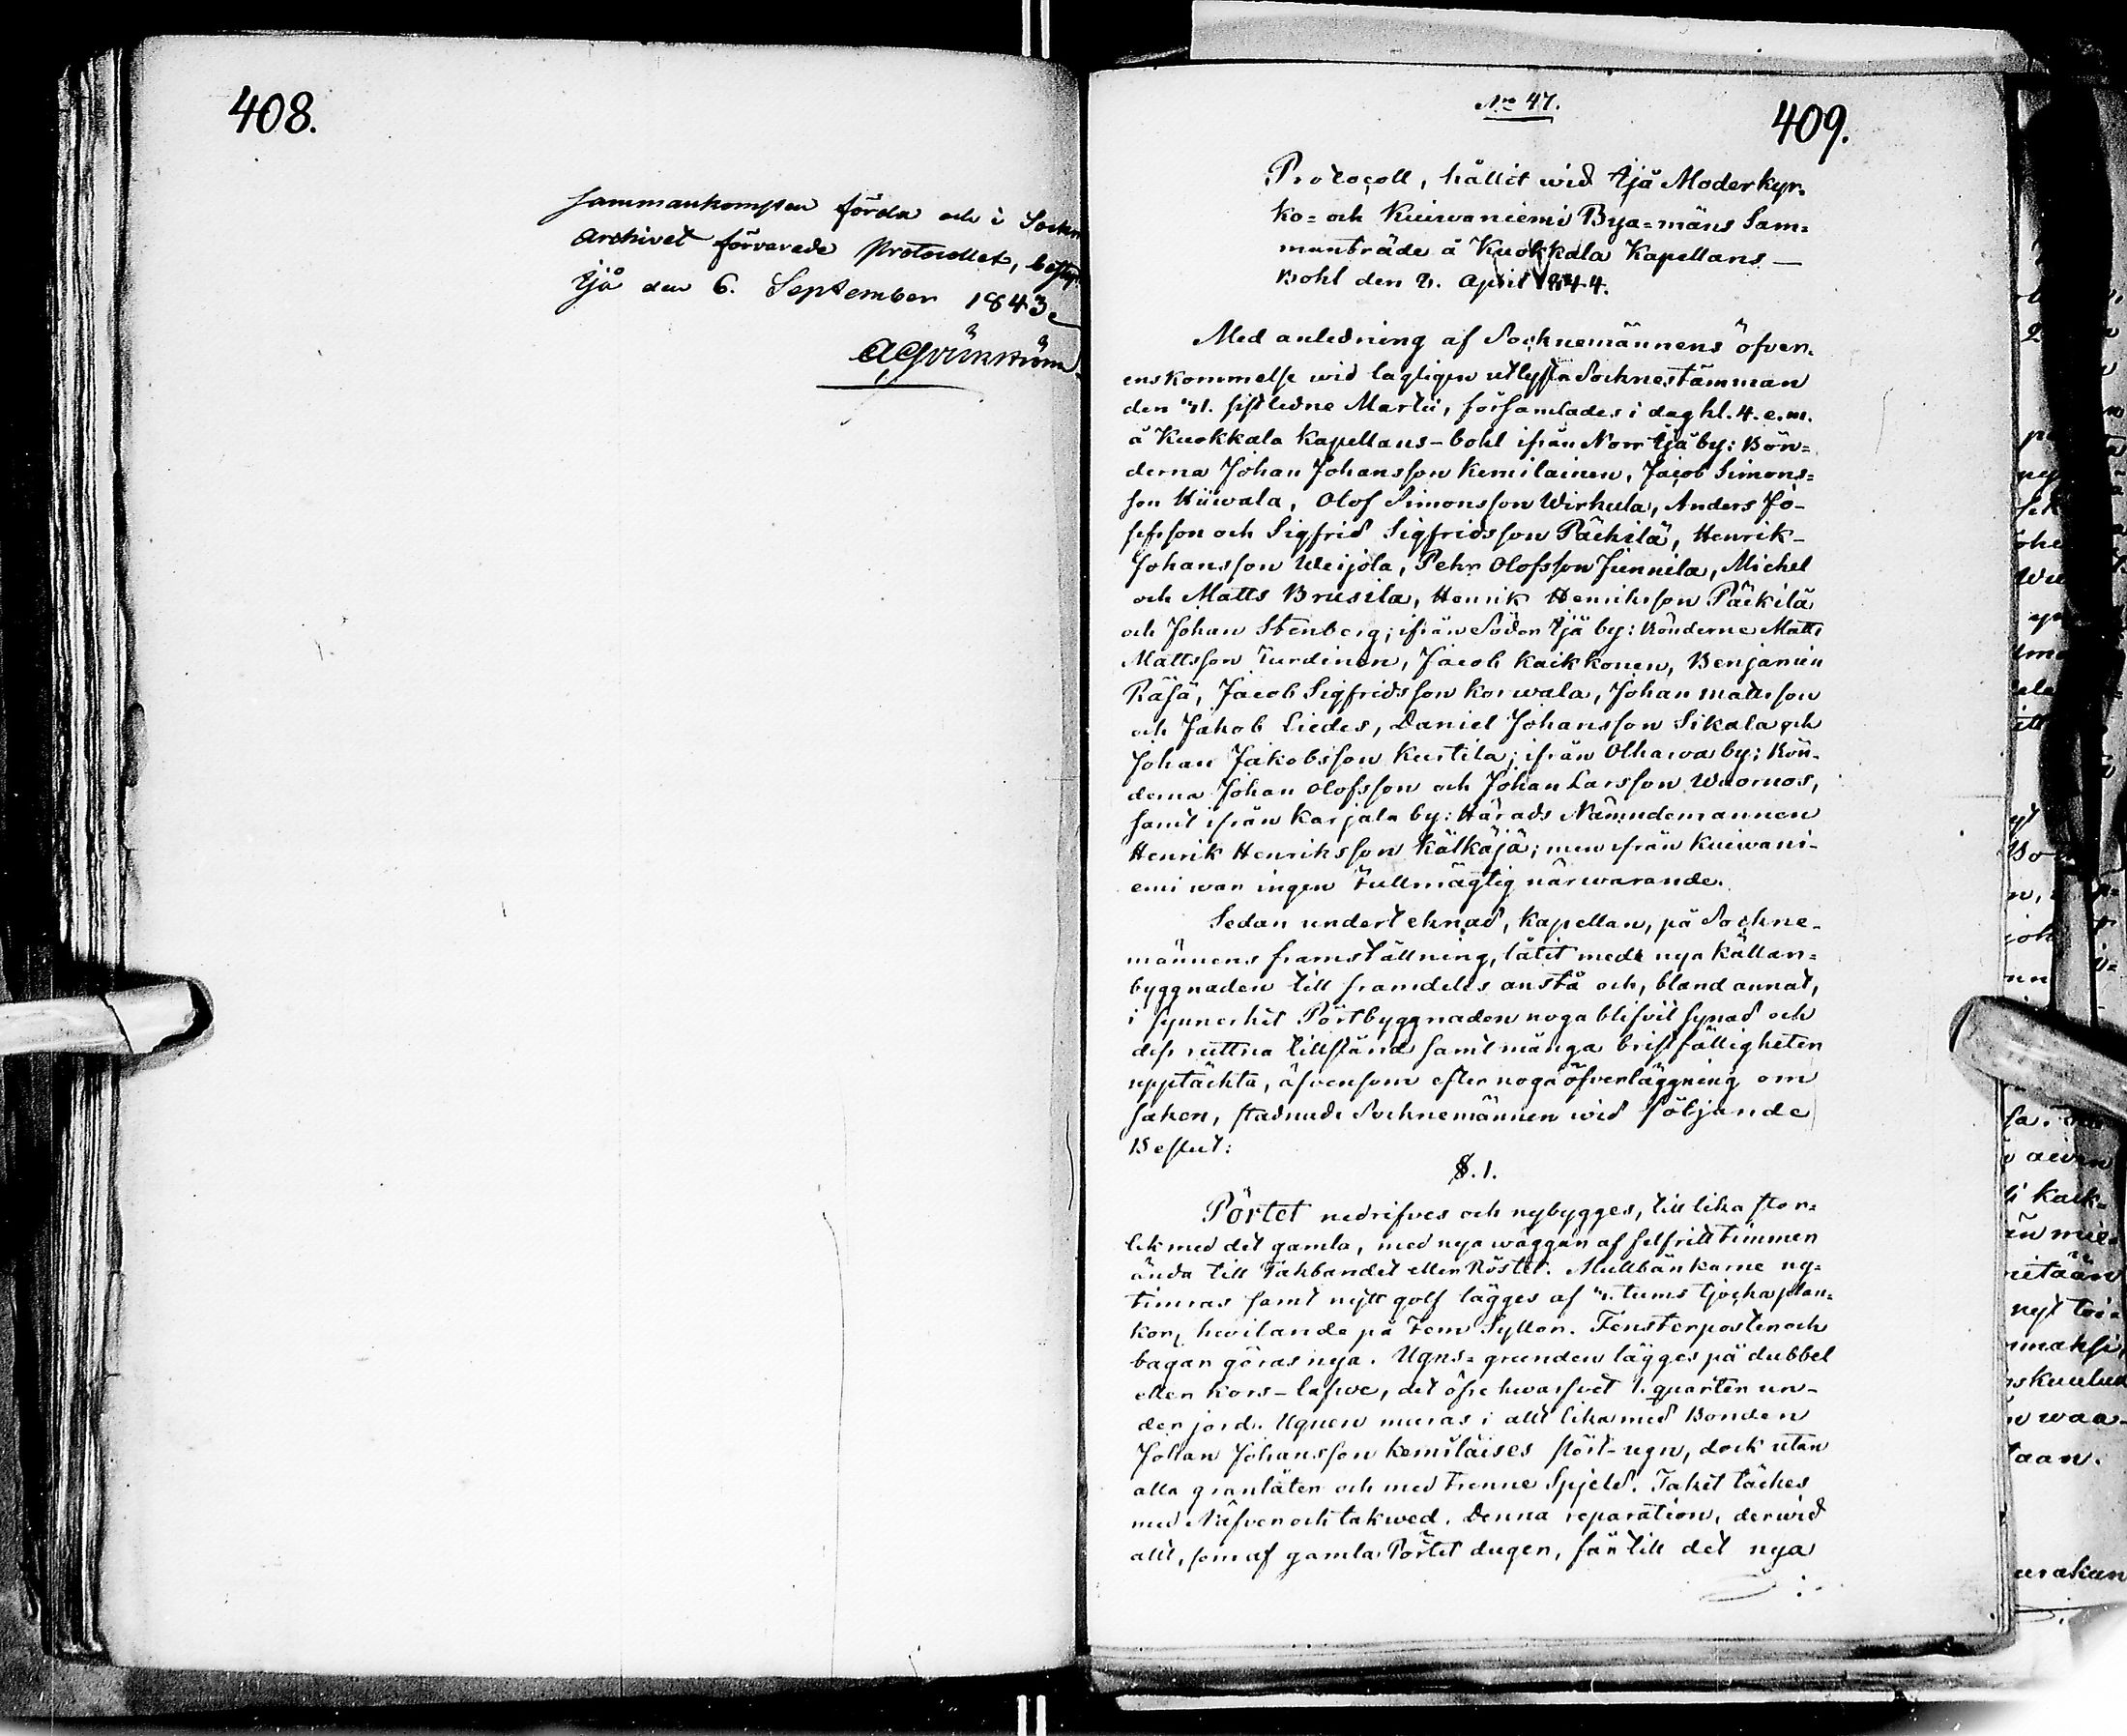 408.
sammankomsten förda och i Sockne
Archivet förvarade Protocollet, bestyr.
Ijo den 6. September 1843.
No 47.
409.
Protocoll, hållit wid Ijå Moderkyr-
ko= och Kuiwaniemi Bya=mäns Sam=
manträde å Kuokkala Kapellans-
Bohl den 2. April 1844.
Med anledning af Socknemännens öfver-
enskommelse wid lagligen utlysta Socknestämman
den 31. sistledne Martii, församlades i dag kl. 4. e.m.
å Kuokkala Kapellans-bohl ifrån Norr Ijå by: Bön=
derna Johan Johansson Kemilainen, Jacob Simons=
son Hiiwala, Olof Simonsson Wirkula, Anders Jo-
sefsson och Sigfrid Sigfridsson Päckilä, Henrik-
Johansson Weijola, Pehr Olofsson Junnila, Michel
och Matts Brusila, Henrik Henriksson Päckilä
och Johan Stenberg; ifrån Söder Ijå by: Bönderne Matts
Mattsson Turdinen, Jacob Kaikkonen, Benjamin
Räsä, Jacob Sigfridsson Korwala, Johan Mattsson
och Jakob Liedes, Daniel Johansson Sikala och
Johan Jakobsson Kurtila; ifrån Olhawa by: Bön-
derna Johan Olofsson och Johan Larsson Wuornos,
samt ifrån Karjala by: Härads Nämndemannen
Henrik Henriksson Kälkäjä; men ifrån Kuiwani-
emi war ingen Fullmägtig närwarande.
Sedan undertecknad, Kapellan, på Sockne-
männens framställning, låtit med nya Källar=
byggnaden till framdeles anstå och, bland annat,
i synnerhet Pörtbyggnaden noga blifvit synad och
dess ruttna tillstånd samt många bristfälligheter
upptäckta, äfvensom efter noga öfverläggning om
saken, stadnade Socknemännen wid följande
Beslut:
§. 1.
Pörtet nedrifves och nybygges, till lika stor=
lek med det gamla, med nya wäggar af felfritt timmer
ända till Takbandet eller Röstet. Mullbänkarne ny=
timras samt nytt golf lägges af 3. tums tjocka plan=
kor, hwilande på Fem Syllor. Fensterposter och
bågar göras nya. Ugns=grunden lägges på dubbel
eller kors-lafwe, det öfre hwarfvet 1. quarter un-
der jord. Ugnen muras i allt lika med Bonden
Johan Johansson Kemiläises pört-ugn, dock utan
alla granlåter och med trenne Spjeld. Taket täckes
med Näfver och takwed. Denna reparation, derwid
allt, som af gamla Pörtet duger, får till det nya